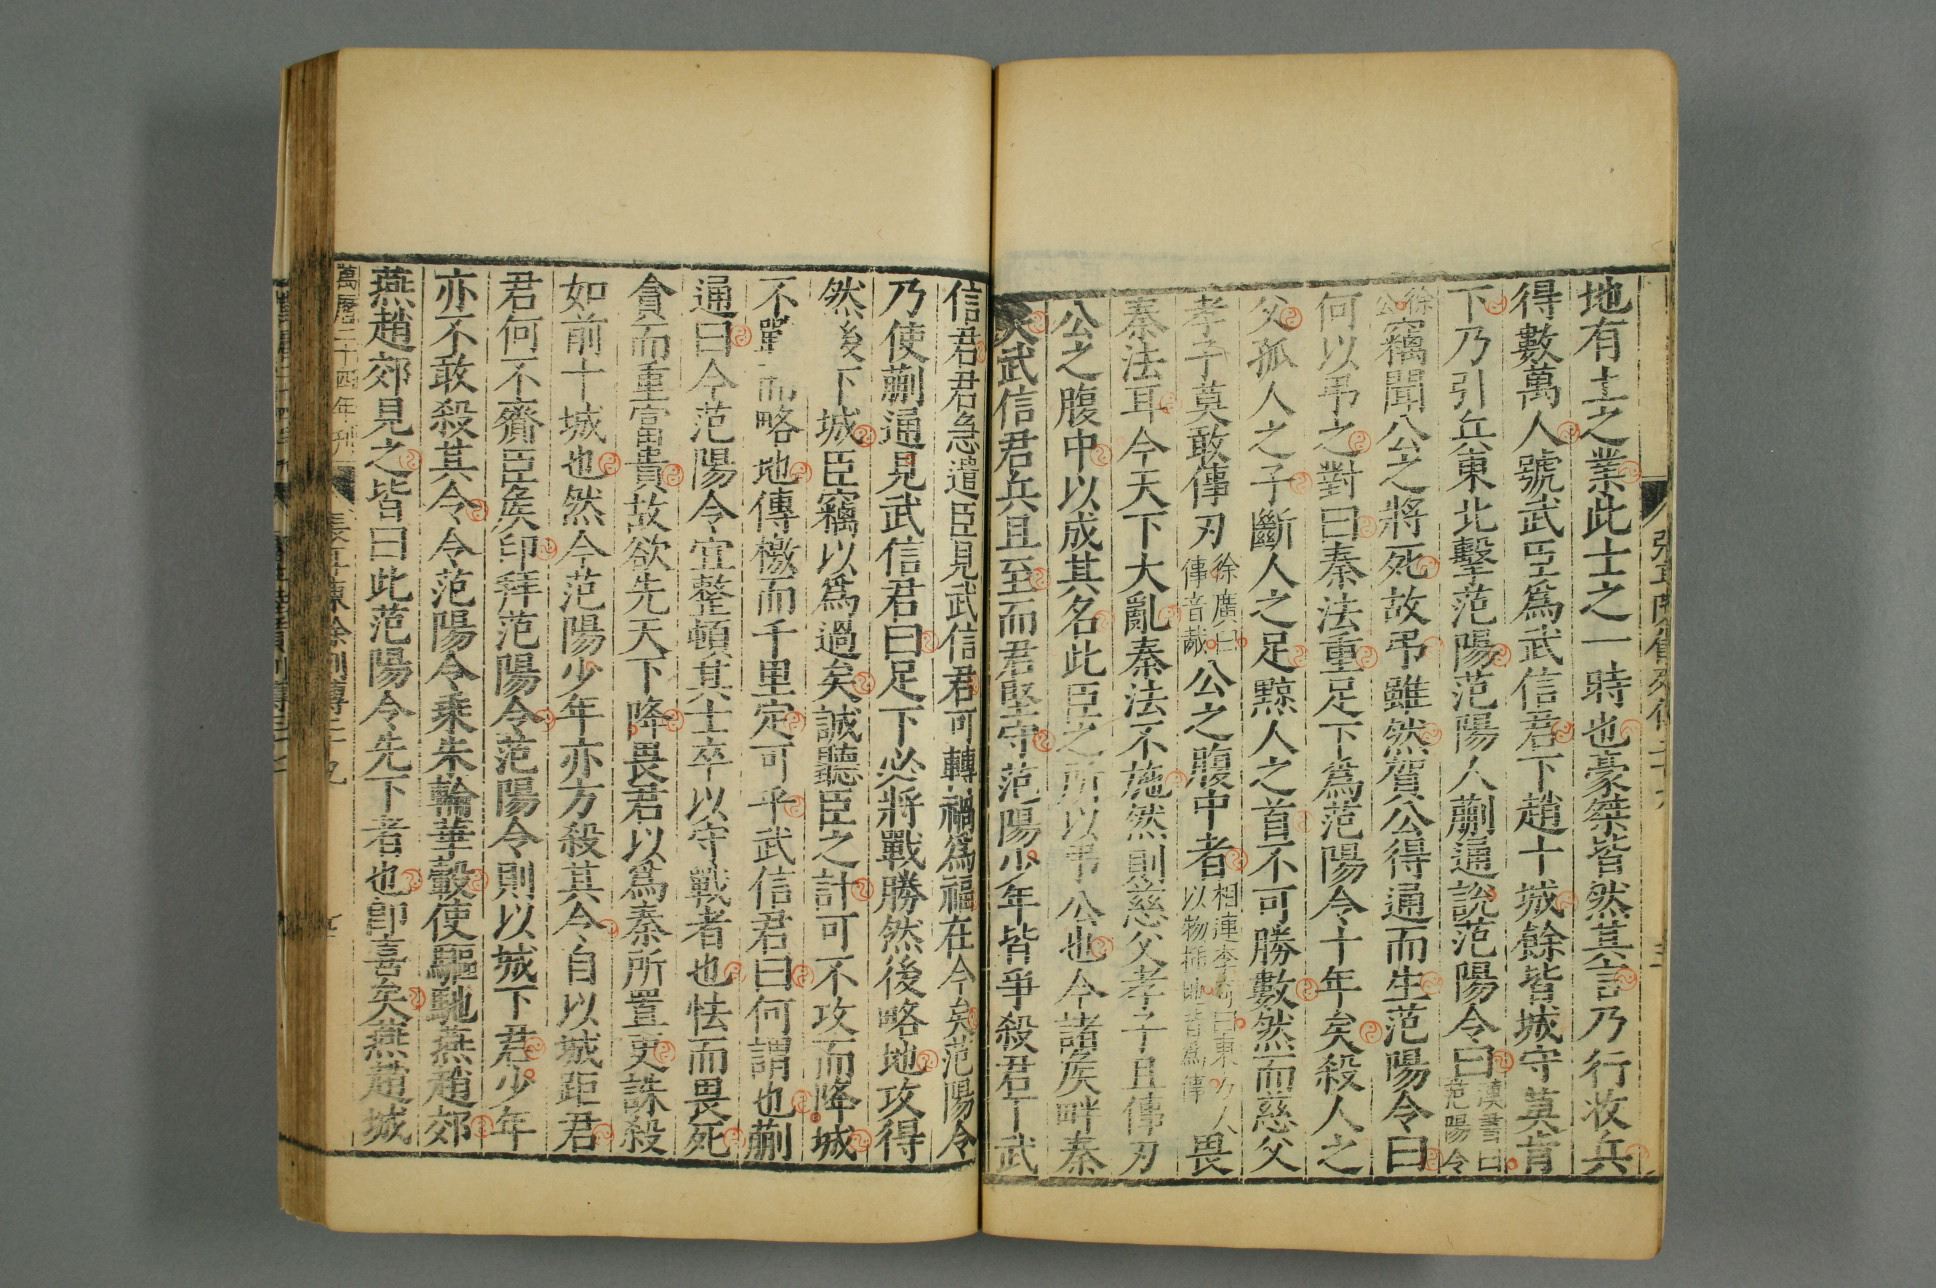 地有土之業此士之一時也豪桀皆然其言乃行收兵
得數萬人號武臣爲武信君下趙十城餘皆城守莫肯
下乃引兵東北擊范陽范陽人蒯通說范陽令曰漢書曰范陽令
徐公竊聞公之將死故弔雖然賀公得通而生范陽令曰
何以弔之對曰秦法重足下爲范陽令十年矣殺人之
父孤人之子斷人之足黥人之首不可勝數然而慈父
孝子莫敢傳刃徐廣曰傳音胾公之腹中者相連李奇曰東方人以物插地皆爲傳畏
秦法耳今天下大亂秦法不施然則慈父孝子且傳刃
公之腹中以成其名此臣之所以弔公也今諸矦畔秦
矣武信君兵且至而君堅守范陽少年皆爭殺君下武
信君君急遣臣見武信君可轉禍爲福在今矣范陽令
乃使蒯通見武信君曰足下必將戰勝然後略地攻得
然後下城臣竊以爲過矣誠聽臣之計可不攻而降城
不戰而略地傳檄而千里定可乎武信君曰何謂也蒯
通曰今范陽令宜整頓其士卒以守戰者也怯而畏死
貪而重富貴故欲先天下降畏君以爲秦所置吏誅殺
如前十城也然今范陽少年亦方殺其令自以城距君
君何不齎臣矦印拜范陽令范陽令則以城下君少年
亦不敢殺其令令范陽令乘朱輪華轂使驅馳燕趙郊
燕趙郊見之皆曰此范陽令先下者也卽喜矣燕趙城
萬曆二十四年刊 張耳陳餘列傳二十九